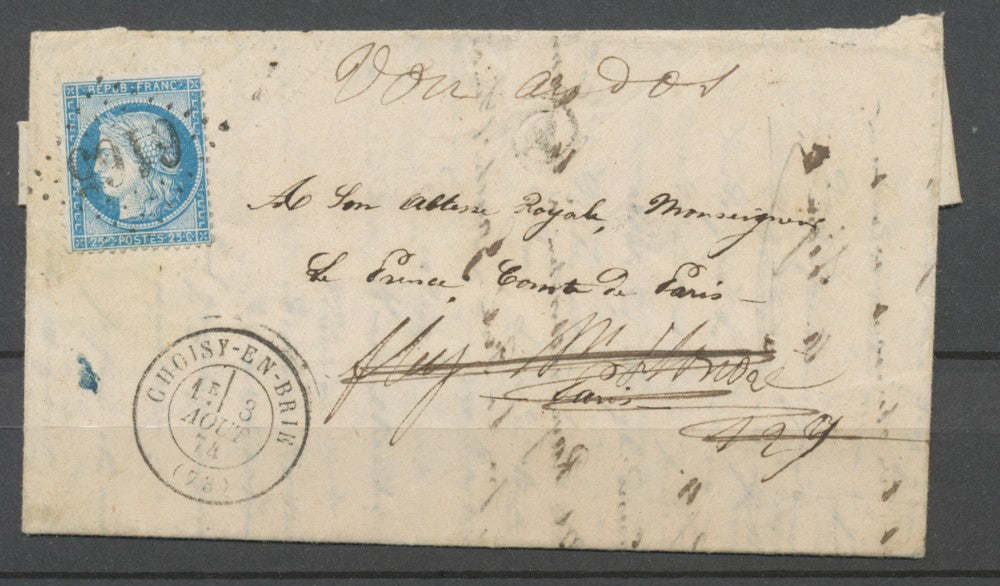 Voir au dos
REPUB. FRANC.
25c POSTES 25c
A Son Altesse Royale, Monseigneur
Le Prince, Comte de Paris
Paris
129
CHOISY-EN-BRIE
1E 8
AOUT
74
(73)